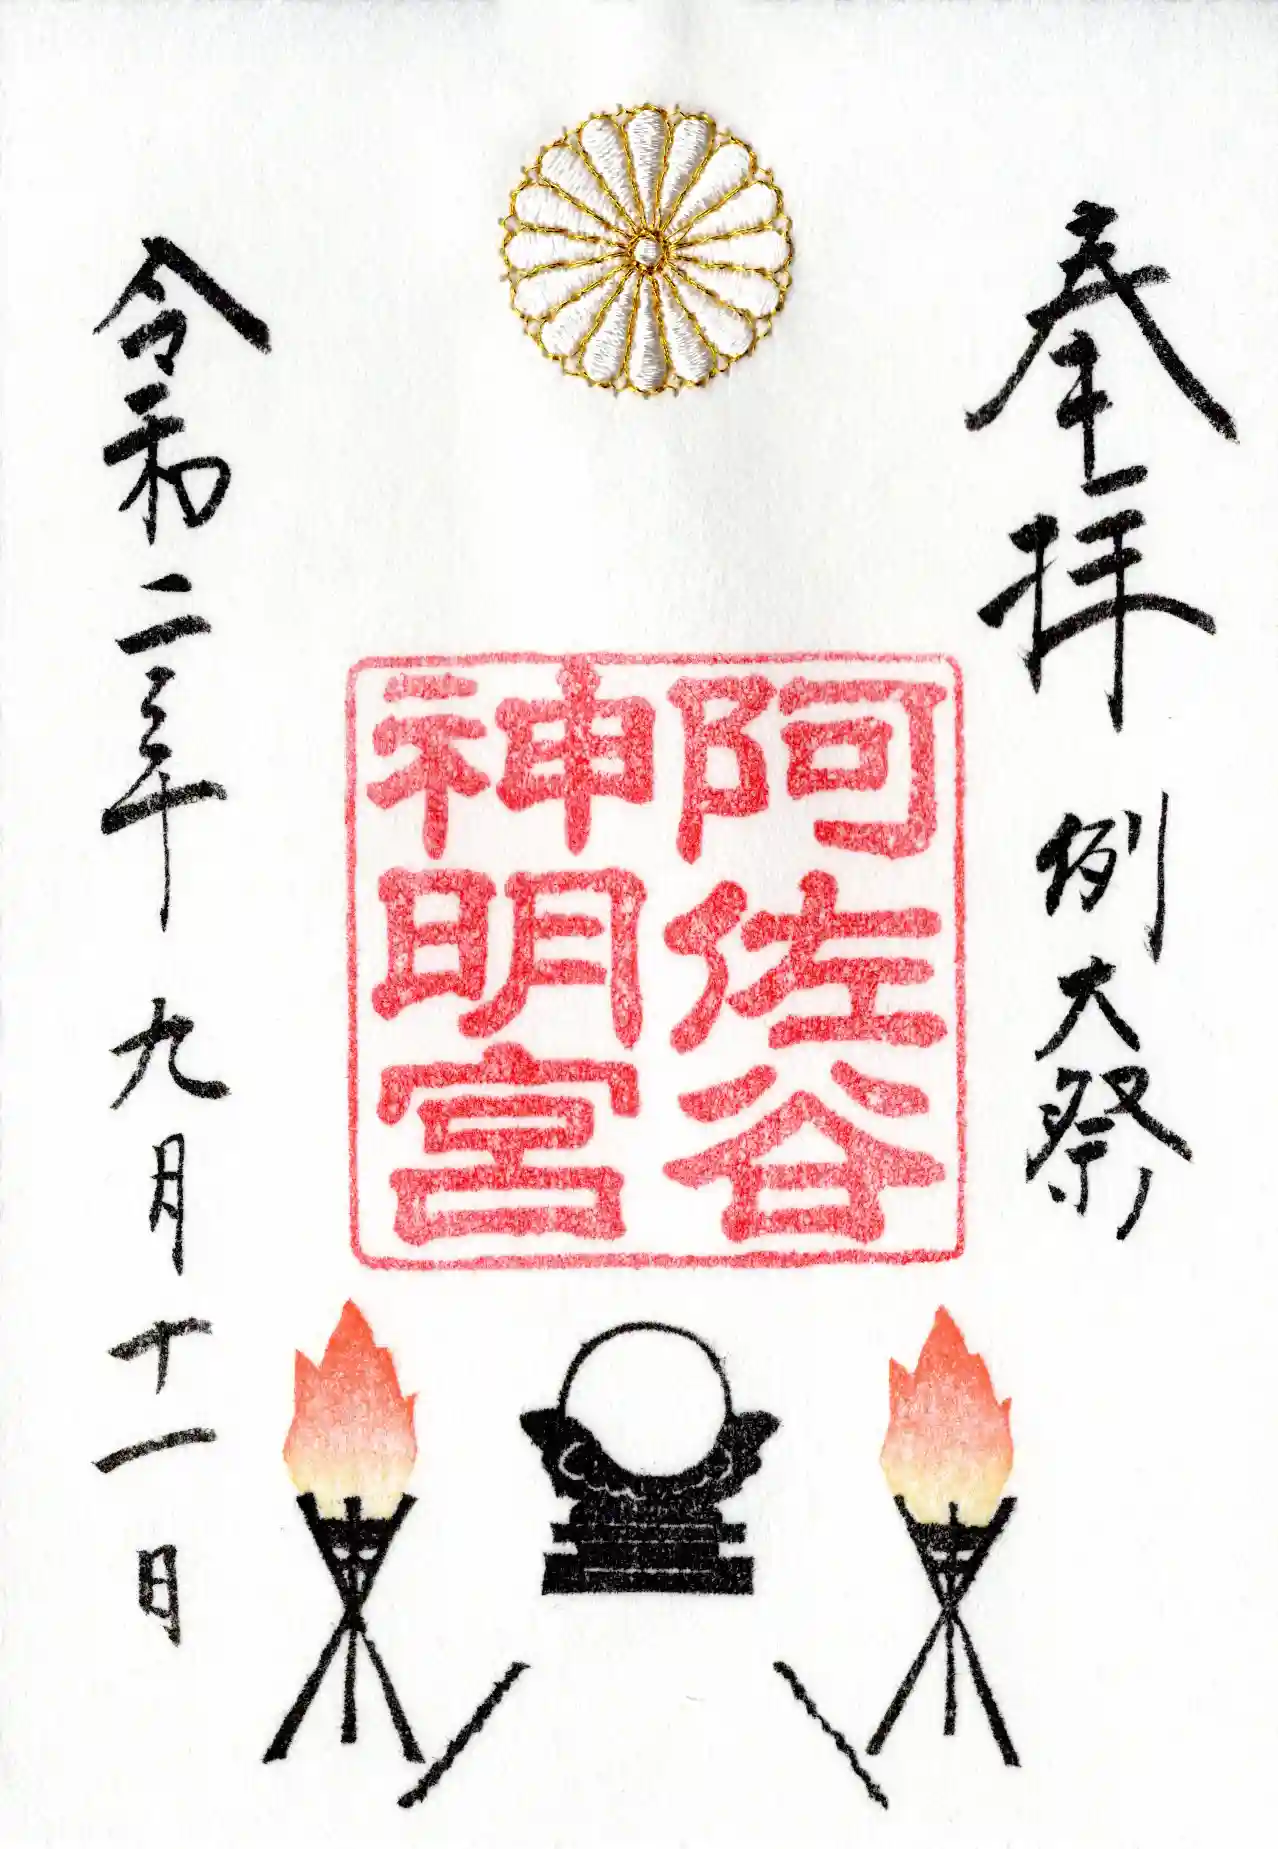 奉拝
例大祭
阿佐谷
神明宮
令和二年 九月十一日